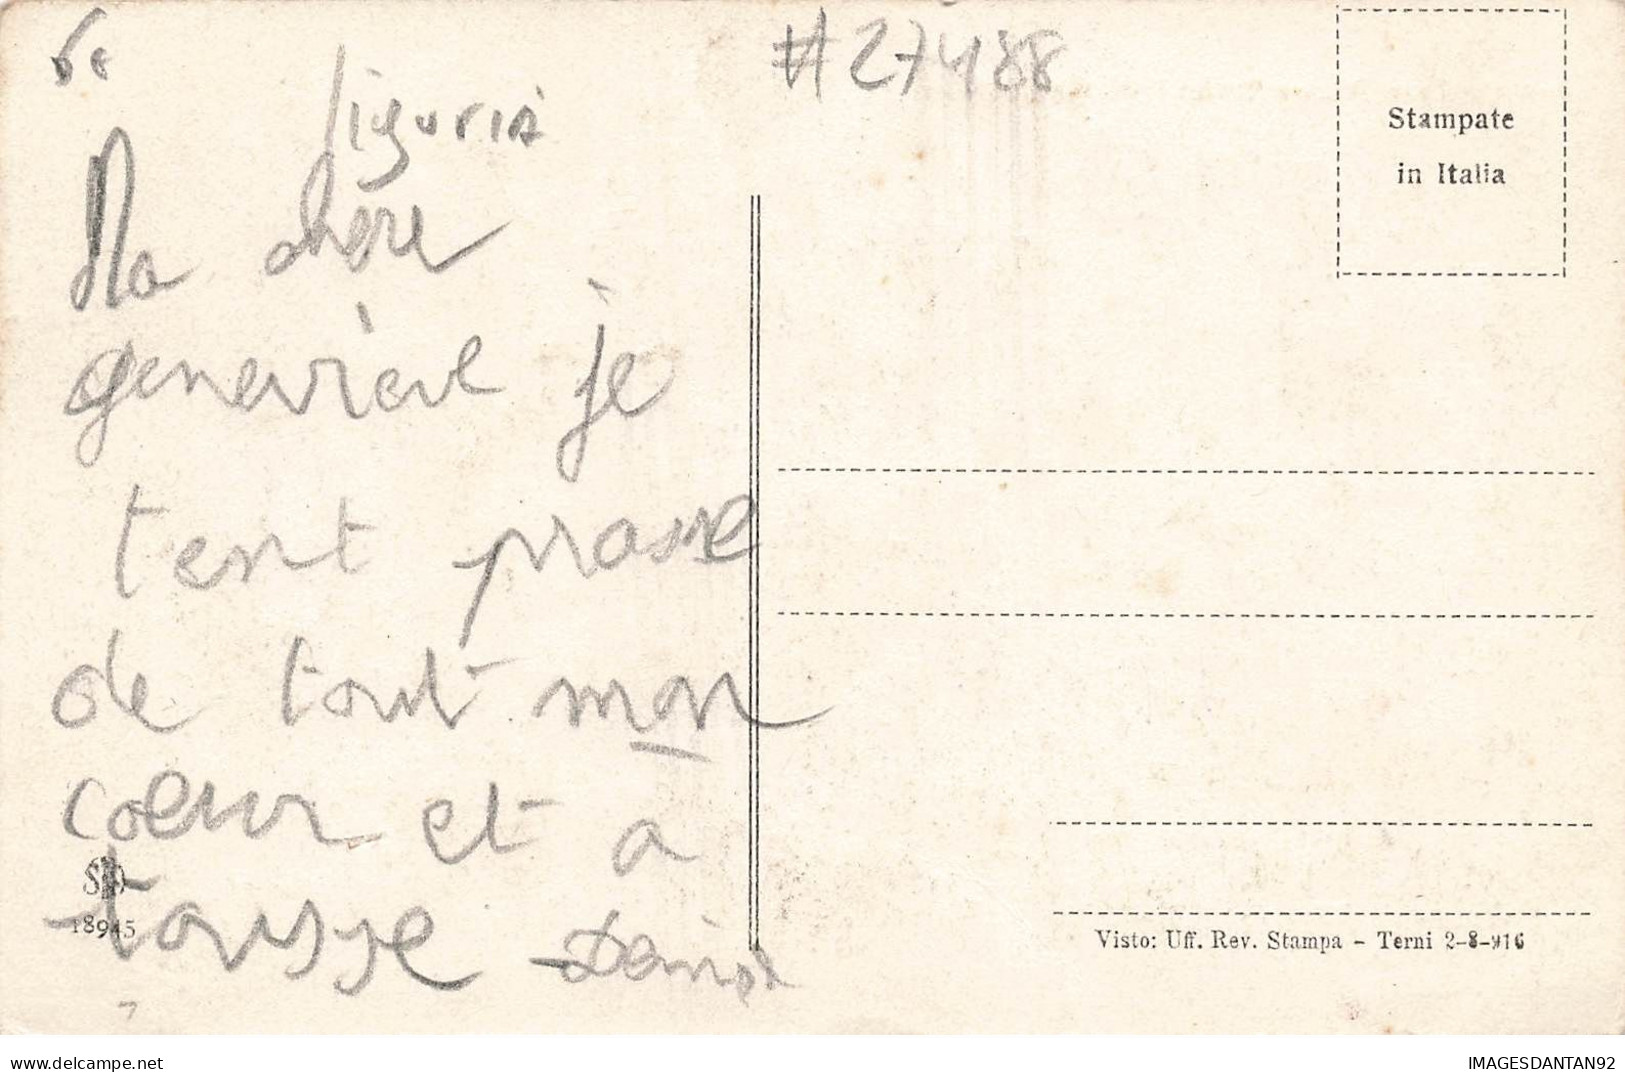 6€
#27488
liguria
Stampate
in Italia
Ma chère
genevieve je
tent prasse
de tout mon
cœur et a
tousse Denise
18945
Visto: Uff. Rev. Stampa - Terni 2-8-916
delcampe.net
IMAGESDANTAN92